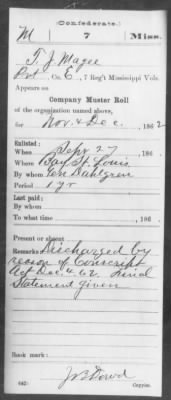 (Confederate.)
M 7 Miss.
T. J. Magee
Pvt, Co. C, 7 Reg't Mississippi Vols.
Appears on
Company Muster Roll
of the organization named above,
for Nov & Dec, 1862
Enlisted:
When Sept 27, 186
Where Bay St. Louis
By whom Gen Dahlgren
Period 1 yr
Last paid:
By whom
To what time, 186 .
Present or absent
Remarks: Discharged by
reason of Conscript
Act Dec 4, 62. Final
Statement given
Book mark:
(642) Copyist.